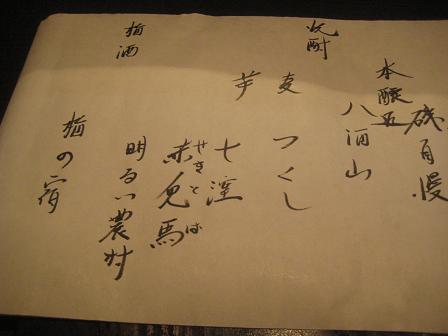 本醸造
磯自慢
八海山
焼酎
麦 つくし
芋 七窪
赤兎馬
せきとば
明るい農村
梅酒
梅の宿